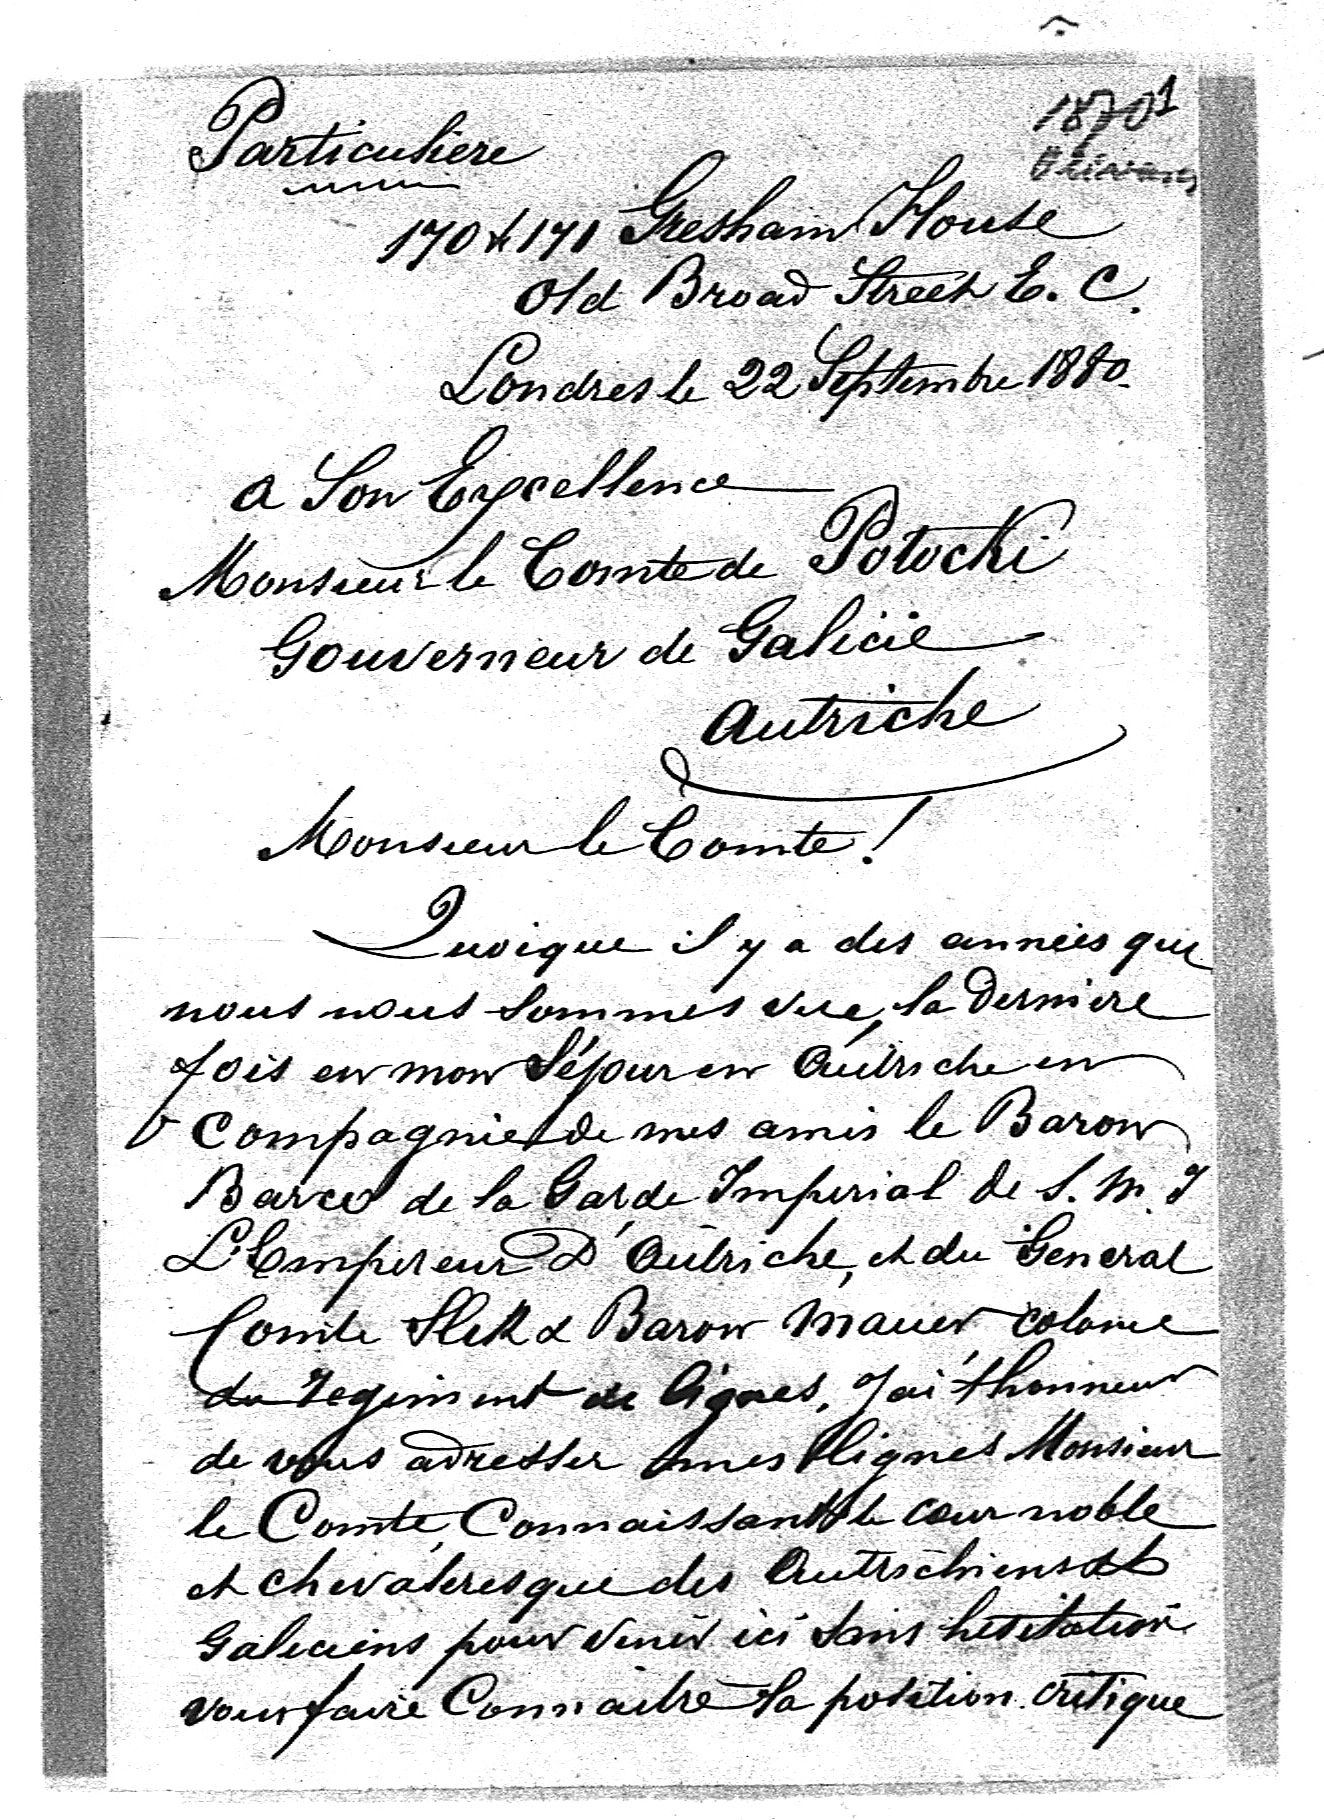 18701
Particulière
170 & 171 Gresham House
Old Broad Street E. C.
Londres le 22 Septembre 1880
a Son Excellence
Monsieur le Comte de Potocki
Gouverneur de Galicie
Autriche
Monsieur le Comte!
Quoique il y a des annéés que
nous nous sommes vue la derniere
fois en mon Séjour en Autriche en
Compagnie de mes amis le Baron
de la Garde Imperial de S. M. I
L'Empereur D'Autriche, et du General
Comte & Baron Mauer
du regiment de lignes, J'ai l'honneur
de vous adresser mes lignes Monsieur
le Comte, Connaissant le cœur noble
et chevaleresque des Autrichiens et
Galiciens pour venir ici sans hesitation
vous faire Connaitre la position critique